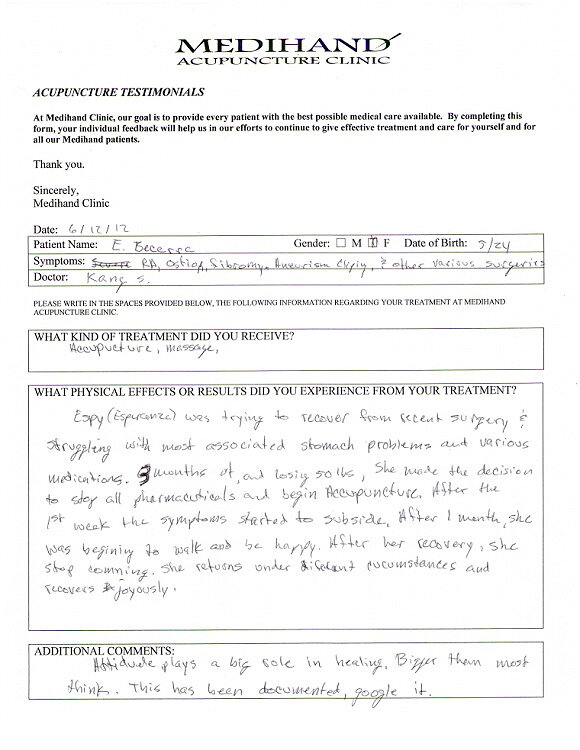 MEDIHAND
ACUPUNCTURE CLINIC
ACUPUNCTURE TESTIMONIALS
At Medihand Clinic, our goal is to provide every patient with the best possible medical care available. By completing this
form, your individual feedback will help us in our efforts to continue to give effective treatment and care for yourself and for
all our Medihand patients.
Thank you.
Sincerely,
Medihand Clinic
Date: 6/12/12
Patient Name: E. Becerra Gender: ☐ M ☒ F Date of Birth: 5/24
Symptoms: RA, Ostiop, Fibromy, Aneurism Clipin, & other various surgeries
Doctor: Kang S.
PLEASE WRITE IN THE SPACES PROVIDED BELOW, THE FOLLOWING INFORMATION REGARDING YOUR TREATMENT AT MEDIHAND
ACUPUNCTURE CLINIC.
WHAT KIND OF TREATMENT DID YOU RECEIVE?
Accupuncture, massage,
WHAT PHYSICAL EFFECTS OR RESULTS DID YOU EXPERIENCE FROM YOUR TREATMENT?
Espy (Esperanza) was trying to recover from recent surgery &
struggling with most associated stomach problems and various
medications. 3 months of, and losing 50 lbs, She made the decision
to stop all pharmaceuticals and begin Accupuncture. After the
1st week the symptoms started to subside, After 1 month, she
was begining to walk and be happy. After her recovery, she
stop comming. She returns under different cucumstances and
recovers joyously.
ADDITIONAL COMMENTS:
Attidude plays a big role in healing, Bigger then most
think. This has been documented, google it.